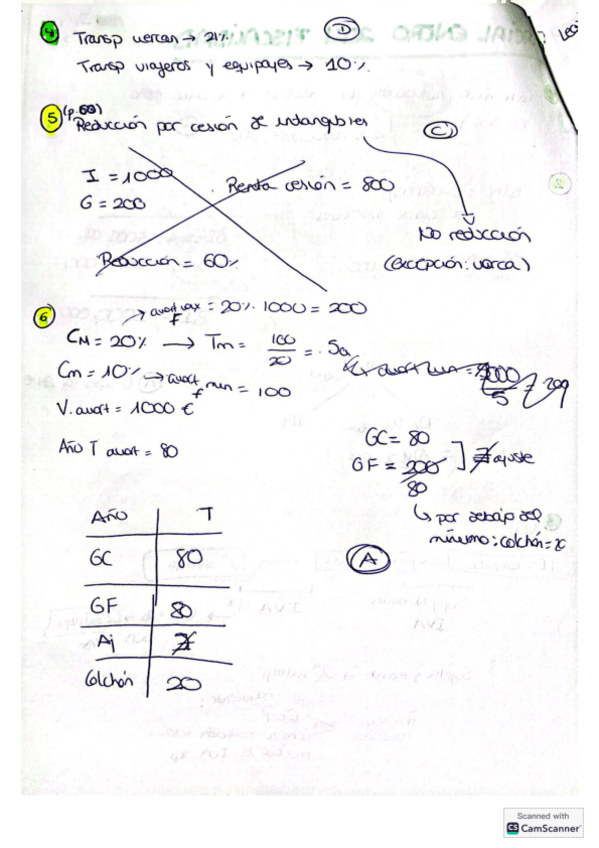 4 Transp mercan → 21% D
Transp viajeros y equipajes → 10%.
5 (p.60)
Reducción por cesión de intangibles C
I = 1000
G = 200
Renta cesión = 800
Reducción = 60%
No reducción
(excepción: marca)
6 → amort max = 20% 1000 = 200
F
CM = 20% → Tm = 100/20 = 5a
Cm = 10% → amort min = 100
F
V. amort = 1000 €
Año T amort = 80
GC = 80
GF = 200 ] ∄ ajuste
80
↳ por debajo del
mínimo: colchón =
A
Año T
GC 80
GF 80
Aj ∄
Colchón 20
Scanned with
CS CamScanner